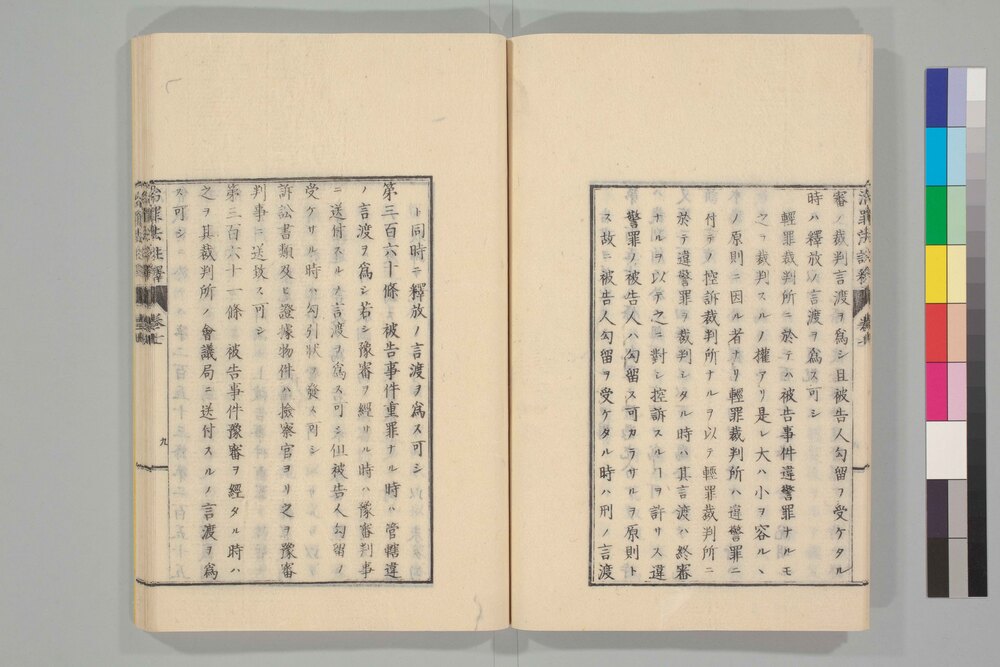 審ノ裁判言渡ヲ爲シ且被告人勾留ヲ受ケタル
時ハ釋放ノ言渡ヲ爲ス可シ
輕罪裁判所ニ於テハ被告事件違警罪ナルモ
之ヲ裁判スルノ權アリ是レ大ハ小ヲ容ルヽ
ノ原則ニ因ル者ナリ輕罪裁判所ハ違警罪ニ
付テノ控訴裁判所ナルヲ以テ輕罪裁判所ニ
於テ違警罪ヲ裁判シタル時ハ其言渡ハ終審
ナルヲ以テ之ニ對シ控訴スルヿヲ許サス違
警罪ノ被告人ハ勾留ス可カラサルヲ原則ト
ス故ニ被告人勾留ヲ受ケタル時ハ刑ノ言渡
ト同時ニ釋放ノ言渡ヲ爲ス可シ
第三百六十條 被告事件重罪ナル時ハ管轄違
ノ言渡ヲ爲シ若シ豫審ヲ經サル時ハ豫審判事
ニ送付スルノ言渡ヲ爲ス可シ但被告人勾留ヲ
受ケサル時ハ勾引狀ヲ發ス可シ
訴訟書類及ヒ證據物件ハ撿察官ヨリ之ヲ豫審
判事ニ送致ス可シ
第三百六十一條 被告事件豫審ヲ經タル時ハ
之ヲ其裁判所ノ會議局ニ送付スルノ言渡ヲ爲
ス可シ
治罪法註釋 卷七
九